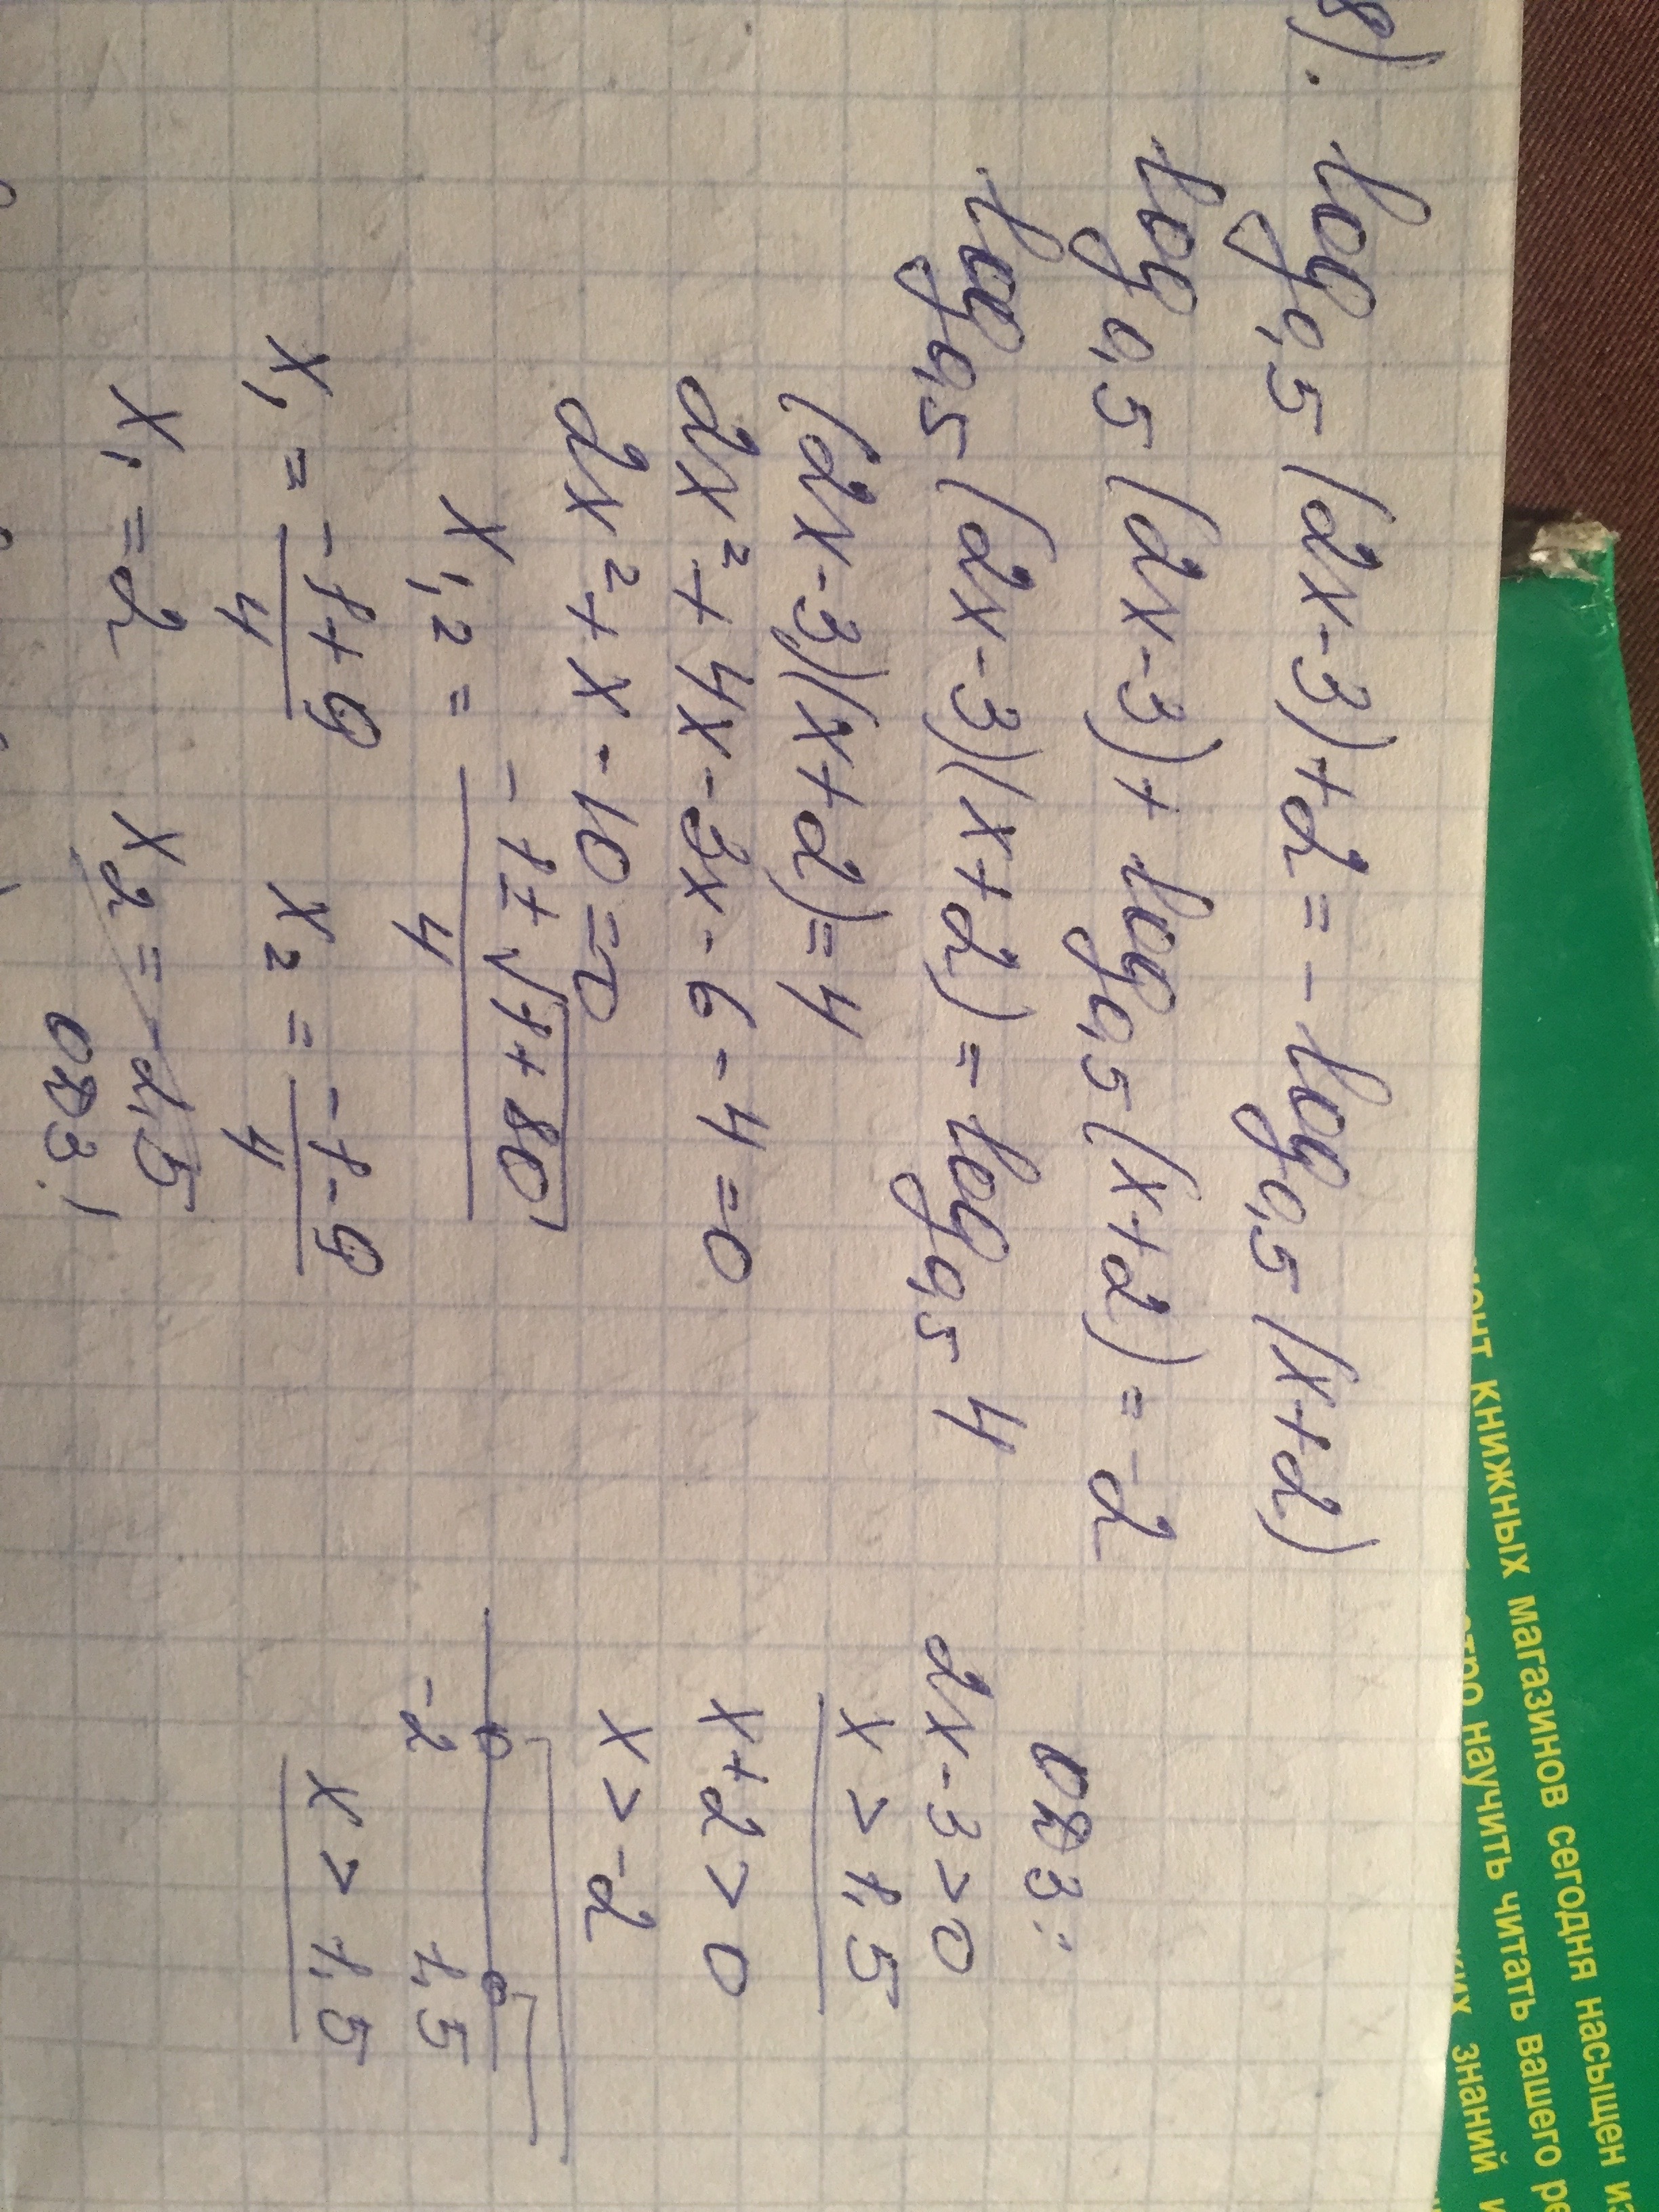 8).
log₀,₅(2x-3)+2=-log₀,₅(x+2)
log₀,₅(2x-3)+log₀,₅(x+2)=-2
log₀,₅(2x-3)(x+2)=log₀,₅4
(2x-3)(x+2)=4
2x²+4x-3x-6-4=0
2x²+x-10=0
x₁,₂ = (-1±√(1+80))/4
x₁ = (-1+9)/4 x₂ = (-1-9)/4
x₁ = 2 x₂ = -2,5
ОДЗ!
ОДЗ:
2x-3>0
x>1,5
x+2>0
x>-2
-2 1,5
x>1,5
книжных магазинов сегодня насыщен
научить читать вашего
знаний